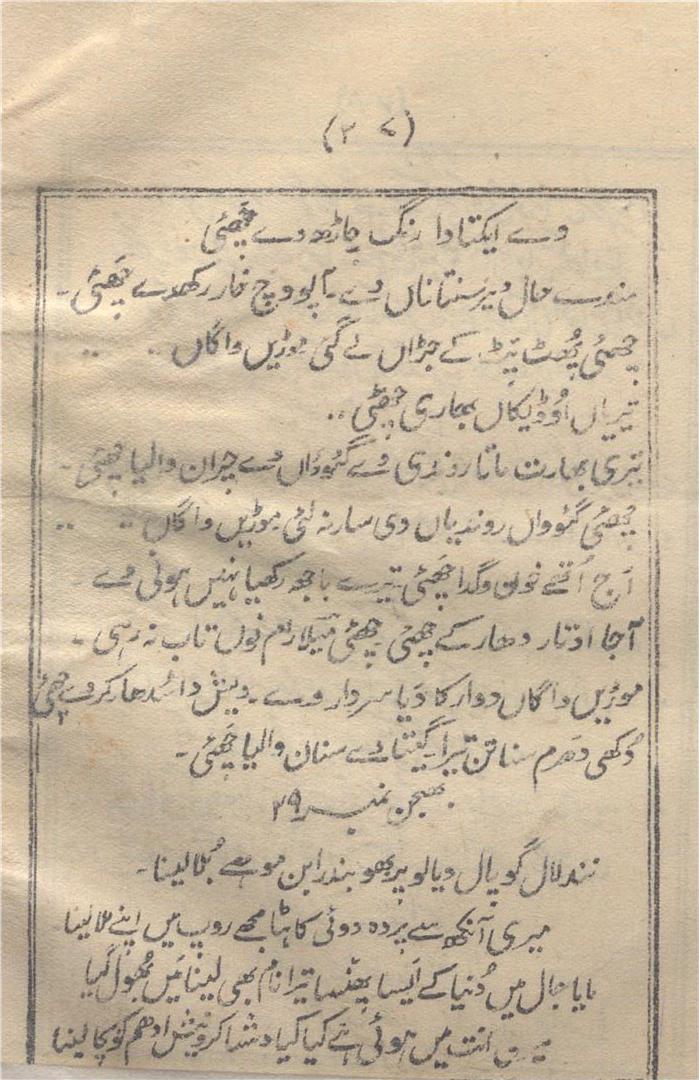 (۲۷)
وے ایکتا دا رنگ چاڑھ دے چھئی
مندے حال ویر سنتاناں دے ۔ آپو وچ خار رکھدے چھئی ۔
چھئی پھوٹ پٹ کے جڑاں لے گئی موڑیں واگاں ۔ ۔ ۔ ۔
تیریاں اُوڈیکاں بھاری چھئی ۔ ۔
تیری بھارت ماتا روندی وے گئوواں دے چران والیا چھئی ۔
چھئی گئوواں روندیاں دی سار نہ لئی موڑیں واگاں ۔ ۔ ۔ ۔
آج اُتھے خون وگدا چھئی تیرے باجھ رکھیا نہیں ہونی وے ۔
آجا اوتار دھار کے چھئی چھئی ظلم نوں تاب نہ رہی ۔
موڑیں واگاں دوارکا دیا سردار وے ۔ دیش دا سُدھار کر دے چھئی
دُکھی دھرم سناتن تیرا ۔ گیتا دے سنان والیا چھئی ۔
بھجن نمبر ۲۹
نند لال گوپال دیالو پربھو بندرابن موہے بُلا لینا ۔
میری آنکھ سے پردہ دوئی کا ہٹا مجھے روپ میں اپنے ملا لینا
مایا جال میں دُنیا کے ایسا پھنسا تیرا نام بھی لینا میں بھول گیا
انت میں ہوئی ہے کیا کیا دشا کر ادھم کو بچا لینا